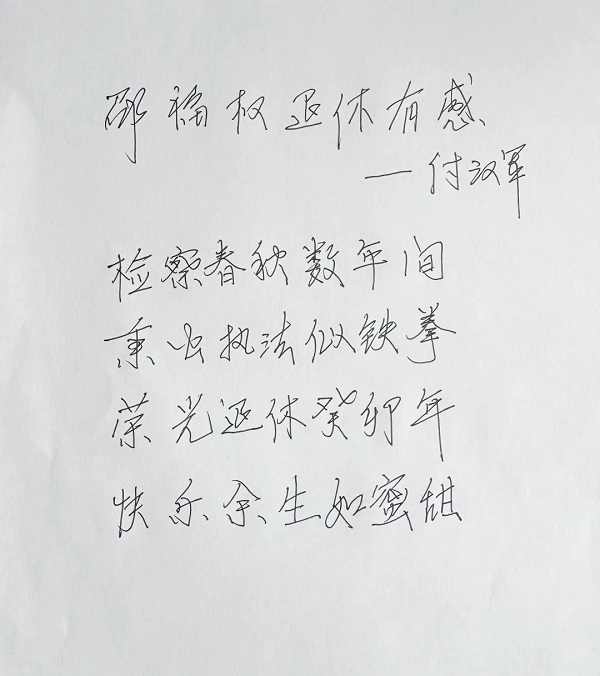 邵福权退休有感
——付汉军
检察春秋数年间
秉公执法似铁拳
荣光退休癸卯年
快乐余生如蜜甜